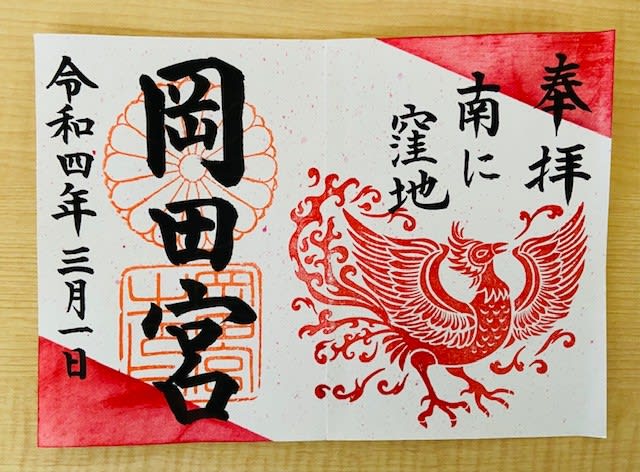 奉拝
南に
窪地
岡田宮
令和四年三月一日